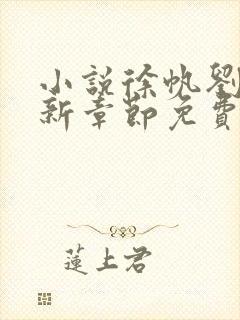 小說徐帆劉
新章節免費
蓮上君